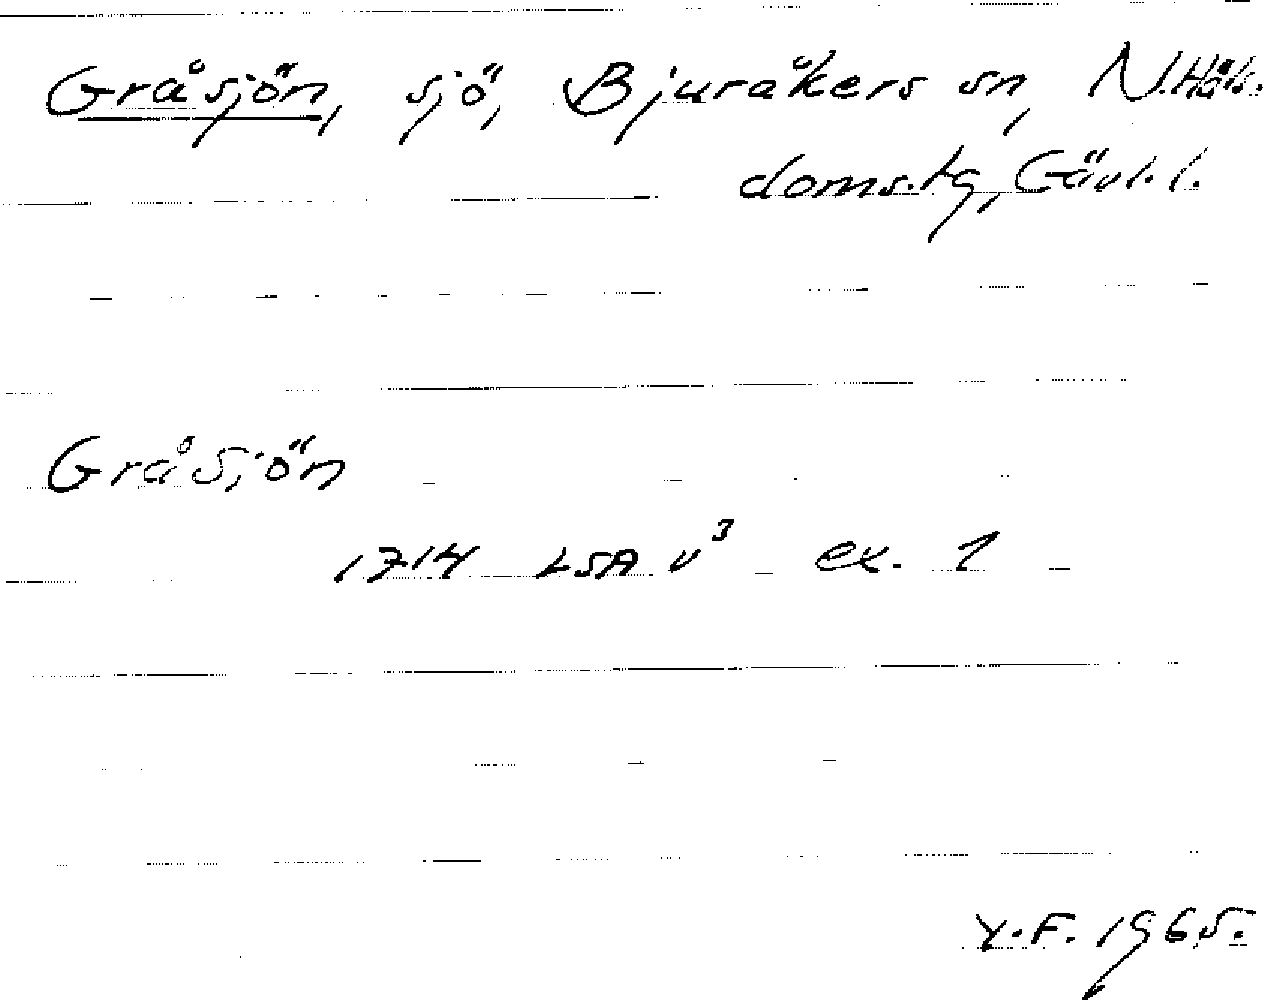 Gråsjön, sjö, Bjuråkers sn, N.Häls.
doms.tg, Gävl.l.
Gråsjön
1714 LSA v³ ex. 1
Y.F. 1965.